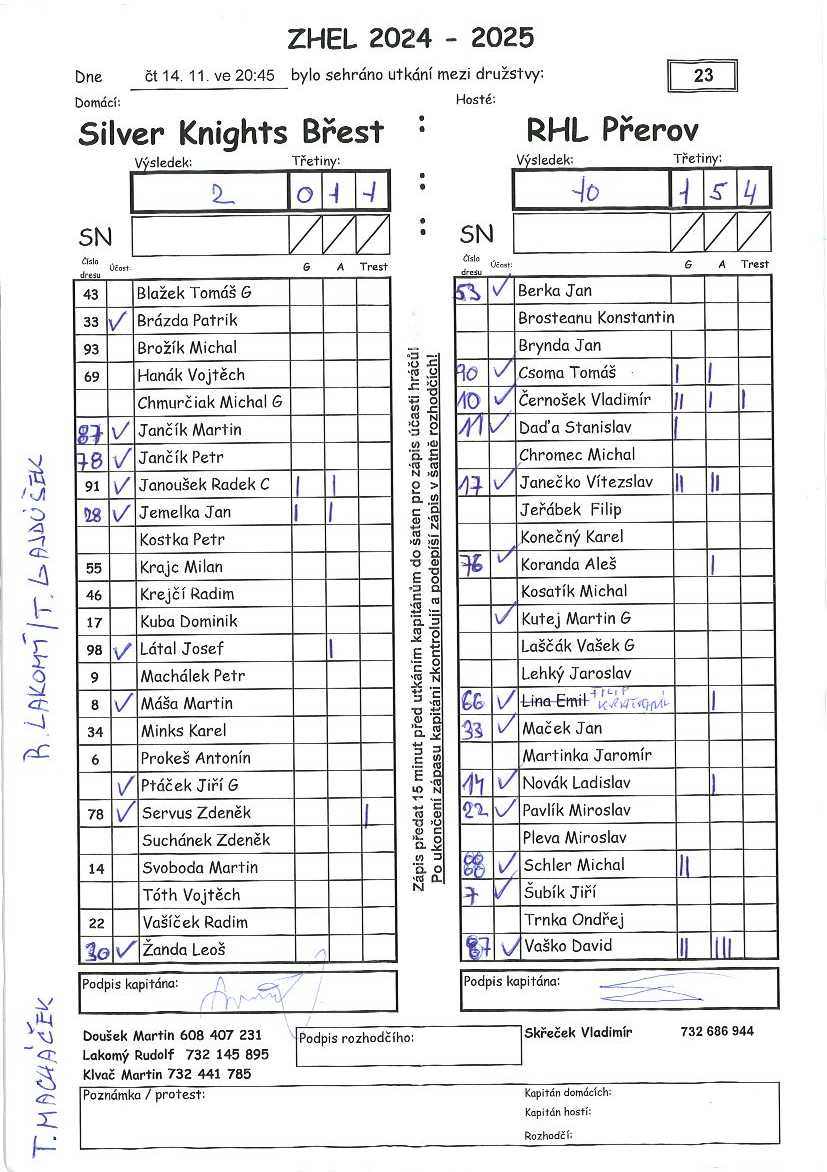 ZHEL 2024 - 2025
Dne čt 14. 11. ve 20:45 bylo sehráno utkání mezi družstvy: 23
Domácí: Hosté:
Silver Knights Břest : RHL Přerov
Výsledek: Třetiny: Výsledek: Třetiny:
2 0 1 1 : 10 1 5 4
SN : SN
Číslo dresu Účast: G A Trest
43 Blažek Tomáš G
33 ✓ Brázda Patrik
93 Brožík Michal
69 Hanák Vojtěch
Chmurčiak Michal G
87 ✓ Jančík Martin
78 ✓ Jančík Petr
91 ✓ Janoušek Radek C I I
28 ✓ Jemelka Jan I I
Kostka Petr
55 Krajc Milan
46 Krejčí Radim
17 Kuba Dominik
98 ✓ Látal Josef I
9 Machálek Petr
8 ✓ Máša Martin
34 Minks Karel
6 Prokeš Antonín
✓ Ptáček Jiří G
78 ✓ Servus Zdeněk I
Suchánek Zdeněk
14 Svoboda Martin
Tóth Vojtěch
22 Vašíček Radim
30 ✓ Žanda Leoš
Podpis kapitána:
Číslo dresu Účast: G A Trest
53 ✓ Berka Jan
Brosteanu Konstantin
Brynda Jan
90 ✓ Csoma Tomáš I I
10 ✓ Černošek Vladimír II I I
11 ✓ Daďa Stanislav I
Chromec Michal
17 ✓ Janečko Vítezslav II II
Jeřábek Filip
Konečný Karel
76 ✓ Koranda Aleš I
Kosatík Michal
✓ Kutej Martin G
Laščák Vašek G
Lehký Jaroslav
66 ✓ Lina Emil FILIP I
33 ✓ Maček Jan
Martinka Jaromír
14 ✓ Novák Ladislav I
22 ✓ Pavlík Miroslav
Pleva Miroslav
88 ✓ Schler Michal II
7 ✓ Šubík Jiří
Trnka Ondřej
87 ✓ Vaško David II III
Podpis kapitána:
Zápis předat 15 minut před utkáním kapitánům do šaten pro zápis účasti hráčů!
Po ukončení zápasu kapitáni zkontrolují a podepíší zápis v šatně rozhodčích!
R. LAKOMÝ / T. GAJDŮŠEK
T. MACHÁČEK
Doušek Martin 608 407 231
Lakomý Rudolf 732 145 895
Klvač Martin 732 441 785
Podpis rozhodčího:
Skřeček Vladimír 732 686 944
Poznámka / protest:
Kapitán domácích:
Kapitán hostí:
Rozhodčí: